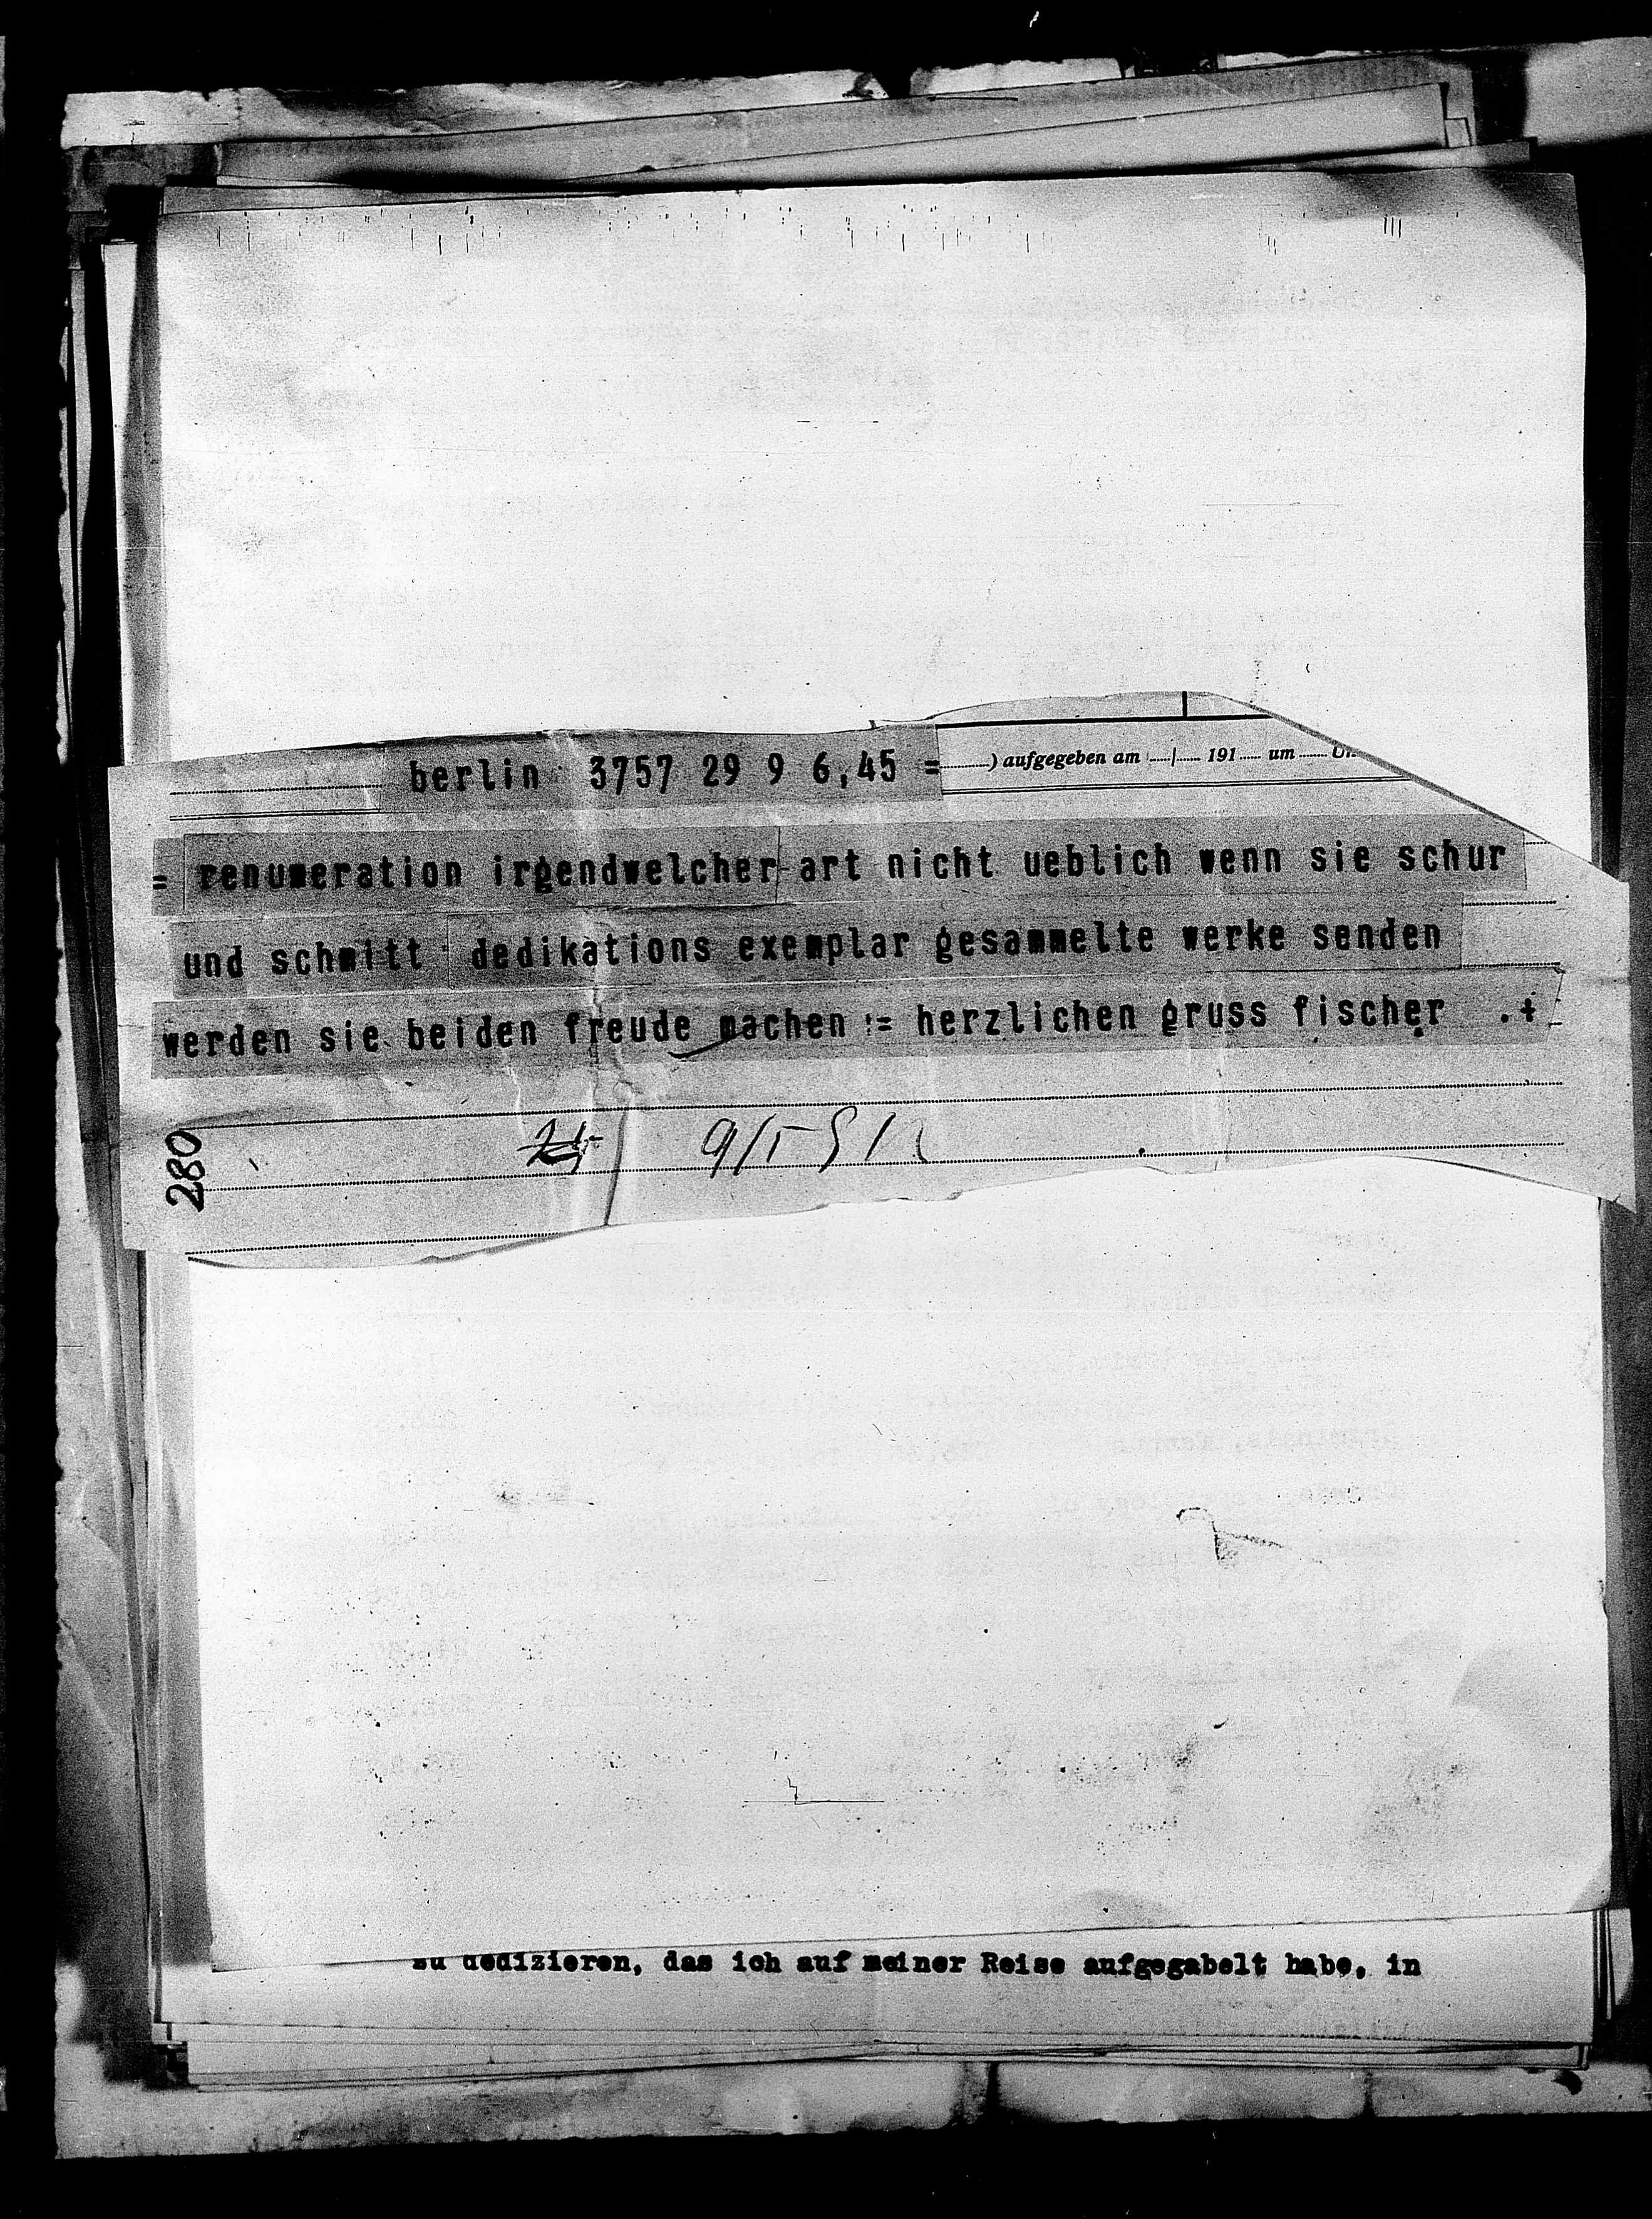 berlin 3757 29 9 6,45 = ) aufgegeben am 191 um
= renumeration irgendwelcher art nicht ueblich wenn sie schur
und schmitt dedikations exemplar gesammelte werke senden
werden sie beiden freude machen := herzlichen gruss fischer .+
280
zu dedizieren, das ich auf meiner Reise aufgegabelt habe, in